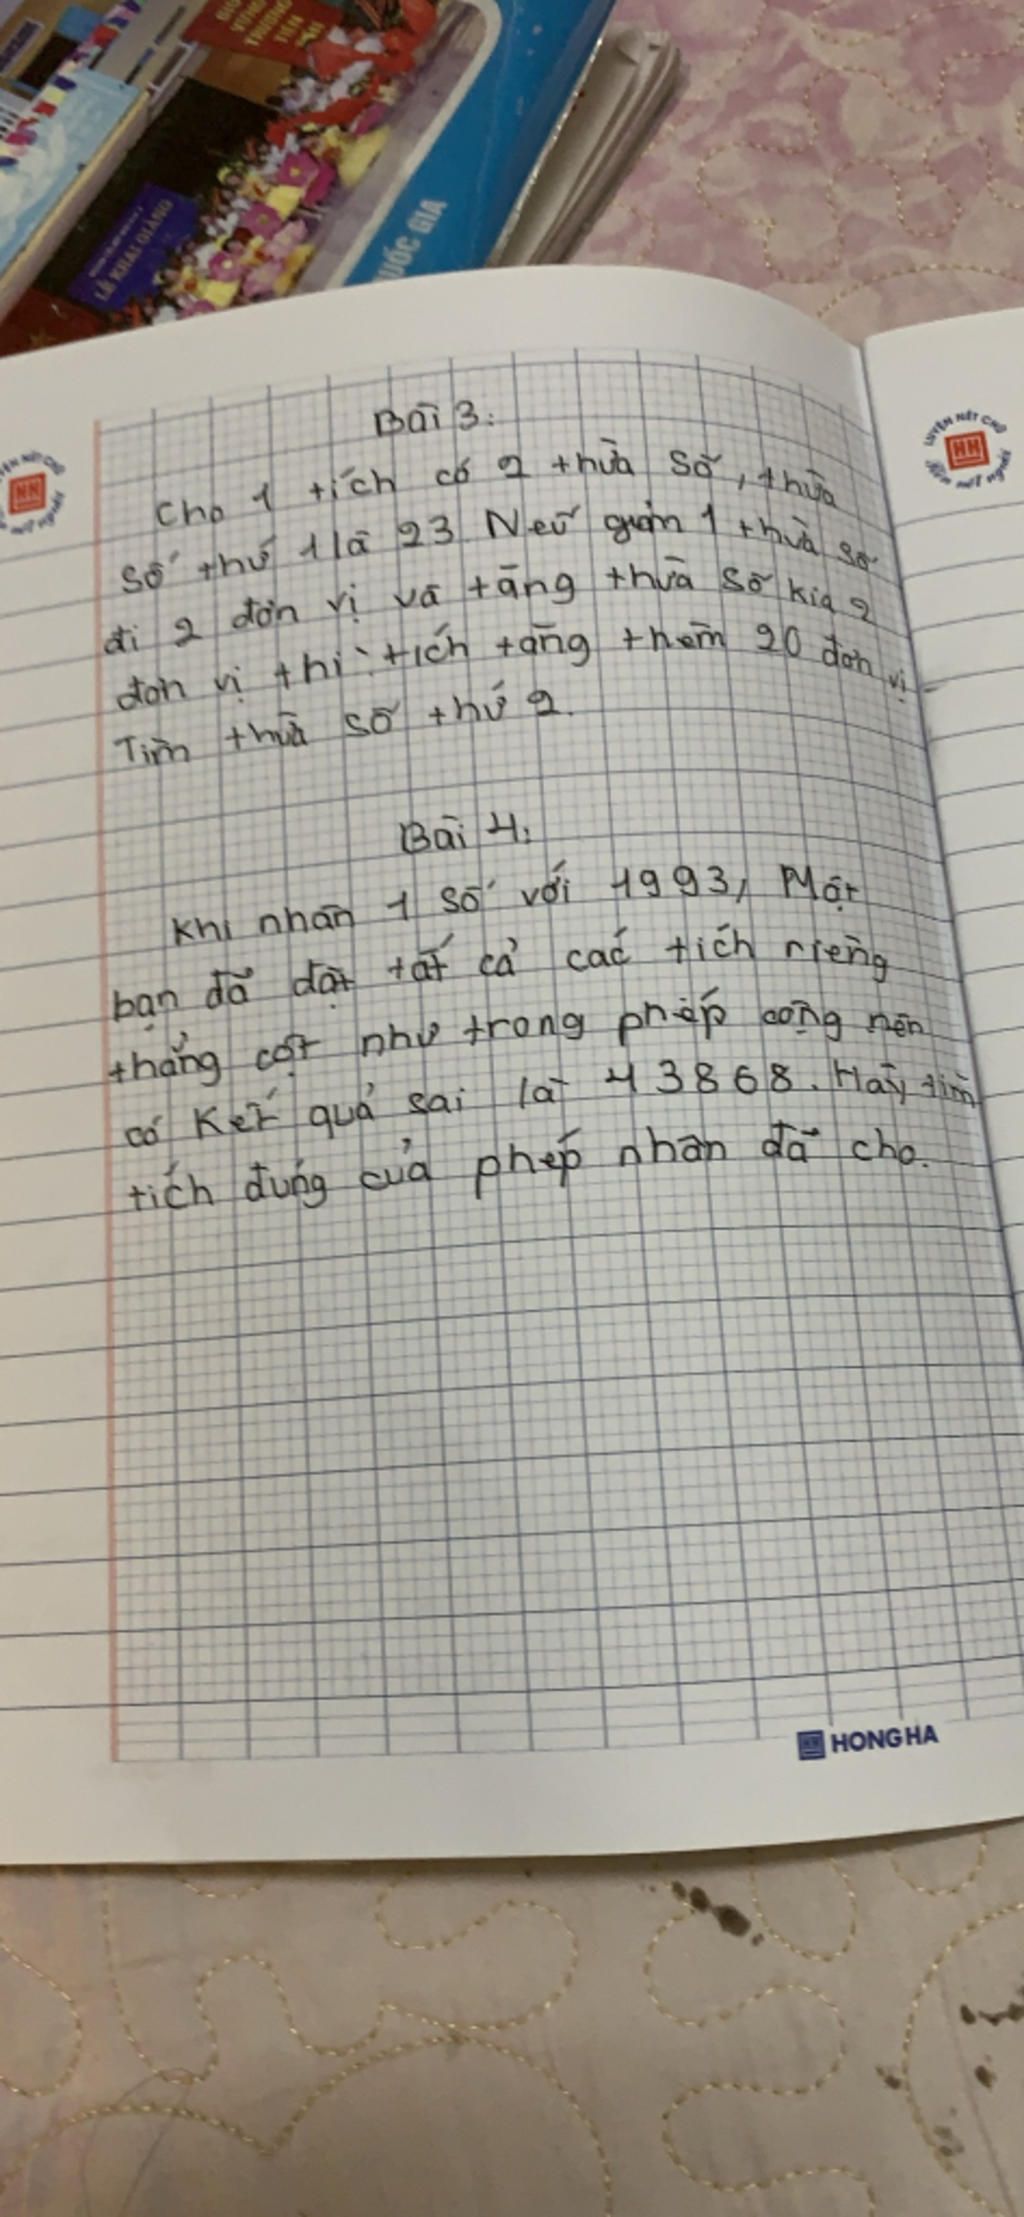 LỄ KHAI GIẢNG
UỐC GIA
Bài 3:
Cho 1 tích có 2 thừa số, thừa
số thứ 1 là 23 Nếu giảm 1 thừa số
đi 2 đơn vị và tăng thừa số kia 2
đơn vị thì tích tăng thêm 20 đơn vị
Tìm thừa số thứ 2.
Bài 4:
Khi nhân 1 số với 1993, Một
bạn đã đặt tất cả các tích riêng
thẳng cột như trong phép cộng nên
có kết quả sai là 43868. Hãy tìm
tích đúng của phép nhân đã cho.
HONG HA